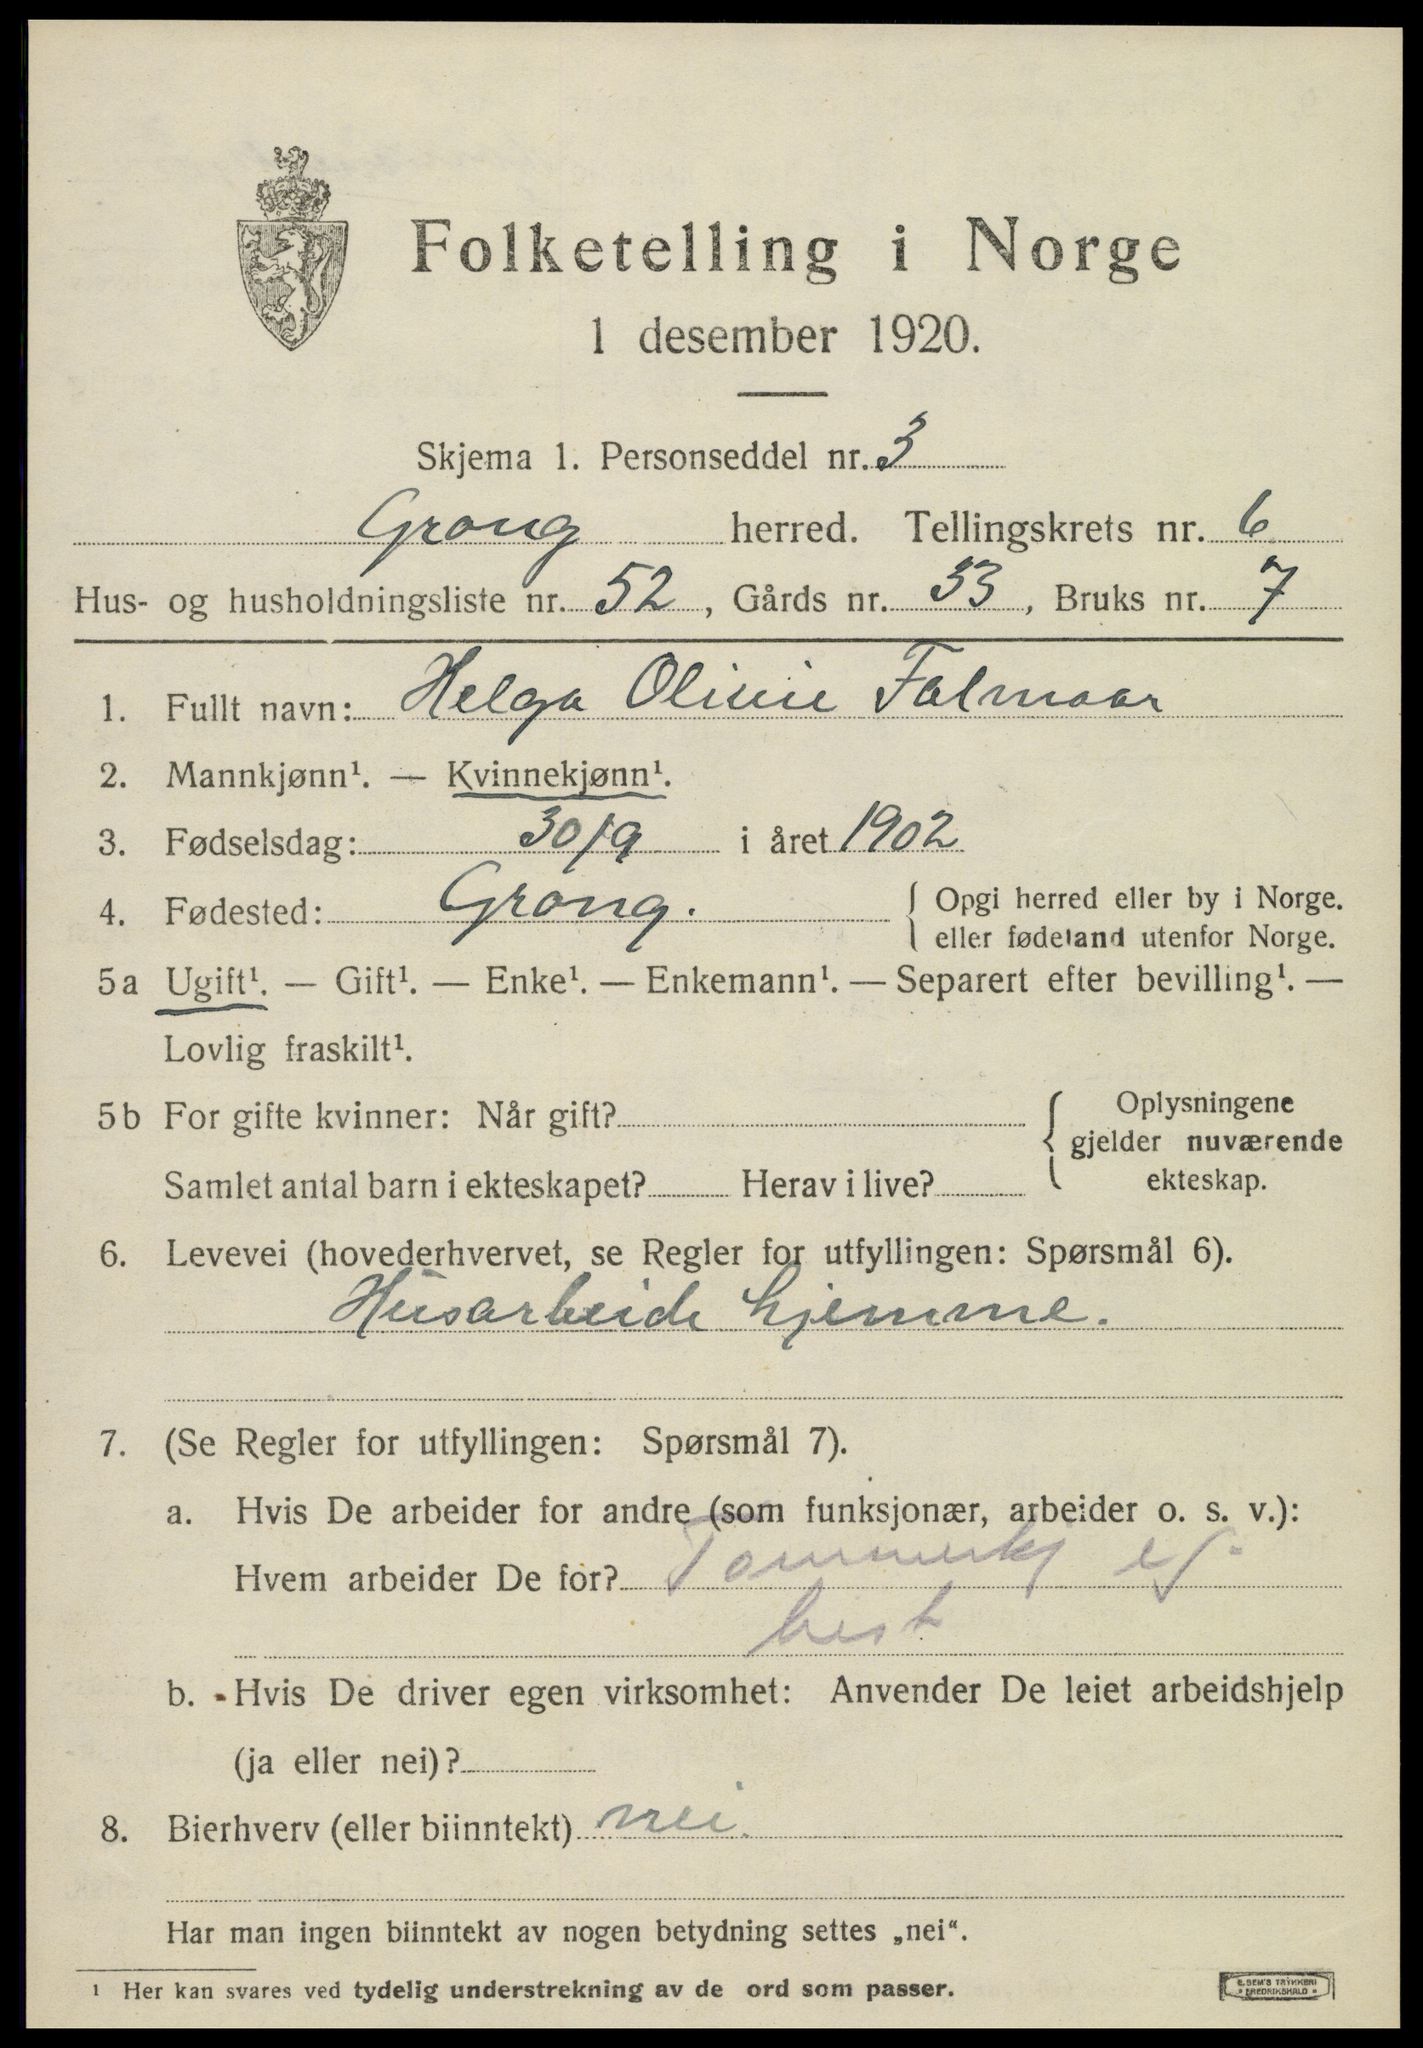 Folketelling i Norge
1 desember 1920.
Skjema 1. Personseddel nr. 3
Grong herred. Tellingskrets nr. 6
Hus- og husholdningsliste nr. 52, Gårds nr. 53, Bruks nr. 7
1. Fullt navn: Helga Olivie Falmoar
2. Mannkjønn¹. — Kvinnekjønn¹.
3. Fødselsdag: 30/9 i året 1902
4. Fødested: Grong. { Opgi herred eller by i Norge.
eller fødeland utenfor Norge.
5a Ugift¹. — Gift¹. — Enke¹. — Enkemann¹. — Separert efter bevilling¹. —
Lovlig fraskilt¹.
5b For gifte kvinner: Når gift? { Oplysningene
gjelder nuværende
Samlet antal barn i ekteskapet? Herav i live? ekteskap.
6. Levevei (hovederhvervet, se Regler for utfyllingen: Spørsmål 6).
Husarbeide hjemme.
7. (Se Regler for utfyllingen: Spørsmål 7).
a. Hvis De arbeider for andre (som funksjonær, arbeider o. s. v.):
Hvem arbeider De for? Tømmerkj
hest
b. Hvis De driver egen virksomhet: Anvender De leiet arbeidshjelp
(ja eller nei)?
8. Bierhverv (eller biinntekt) nei.
Har man ingen biinntekt av nogen betydning settes „nei".
¹ Her kan svares ved tydelig understrekning av de ord som passer.
E. SEM'S TRYKKERI
FREDRIKSHALD